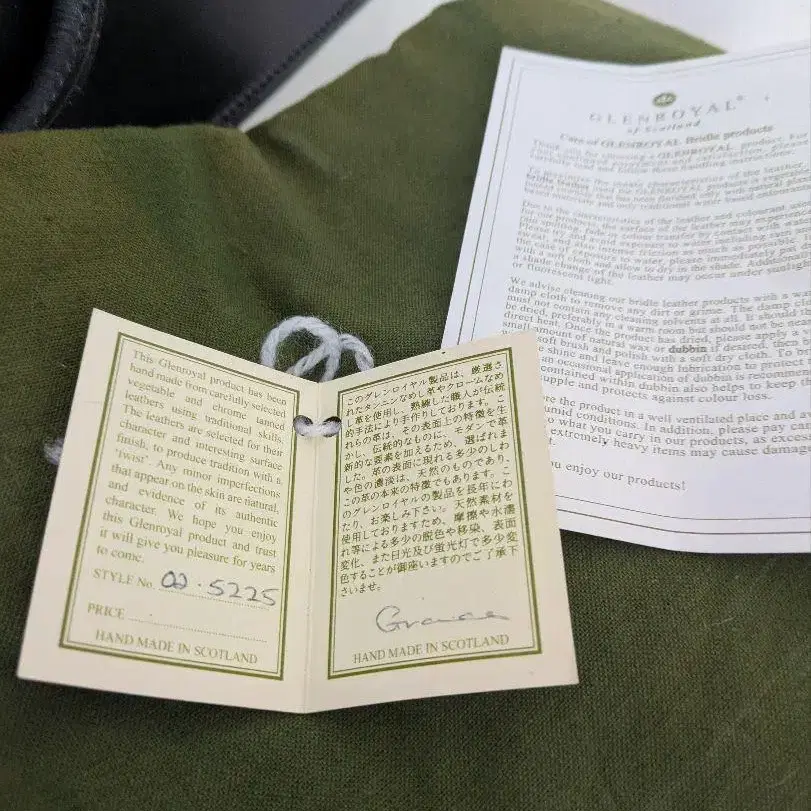 This Glenroyal product has been
hand made from carefully selected
vegetable and chrome tanned
leathers using traditional skills.
The leathers are selected for their
character and interesting surface
finish, to produce tradition with a
'twist'. Any minor imperfections
that appear on the skin are natural,
and evidence of its authentic
character. We hope you enjoy
this Glenroyal product and trust
it will give you pleasure for years
to come.
STYLE No. 02.5225
PRICE
HAND MADE IN SCOTLAND
このグレンロイヤル製品は、厳選さ
れたタンニンなめし革やクロームなめ
し革を使用し、熟練した職人が伝統
的手法により手作りしております。こ
れらの革は、その表面上の特徴を生
かし、伝統的なものに、モダンで革
新的な要素を加えるため、選ばれま
した。革の表面に現れる多少のしわ
や色の濃淡は、天然のものであり、
この革の本来の特徴でもあります。こ
のグレンロイヤルの製品を長年にわ
たり、お楽しみ下さい。天然素材を
使用しておりますため、摩擦や水濡
れ等による多少の脱色や移染、表面
変化、また日光及び蛍光灯で多少変
色することが御座いますのでご了承下
さいませ。
HAND MADE IN SCOTLAND
GLENROYAL®
of Scotland
Care of GLENROYAL Bridle products
Thank you for choosing a GLENROYAL product. For
To maximise the
bridle leather
Due to the characteristics of the leather and colourant
for our products, the surface of the leather may
rain spotting, fade or colour transfer by contact with
Please try and avoid exposure to water including
sweat, and also intense friction as much as possible. If
the case of exposure to water, please immediately pat
with a soft cloth and allow to dry in the shade. Additional
a shade change of the leather may occur under sunlight
or fluorescent light.
We advise cleaning our bridle leather products with a
damp cloth to remove any dirt or grime. The damp
must not contain any cleaning solvents at all. It should
be dried, preferably in a warm room but should not be
direct heat. Once the product has dried, please apply a
small amount of natural wax or dubbin if desired, then
soft brush and polish with a soft dry cloth. To
shine and leave enough lubrication to
an occasional application of dubbin is
contained within dubbin also helps to keep
supple and protects against colour loss.
the product in a well ventilated place and
conditions. In addition, please pay
to what you carry in our products, as
extremely heavy items may cause
enjoy our products!